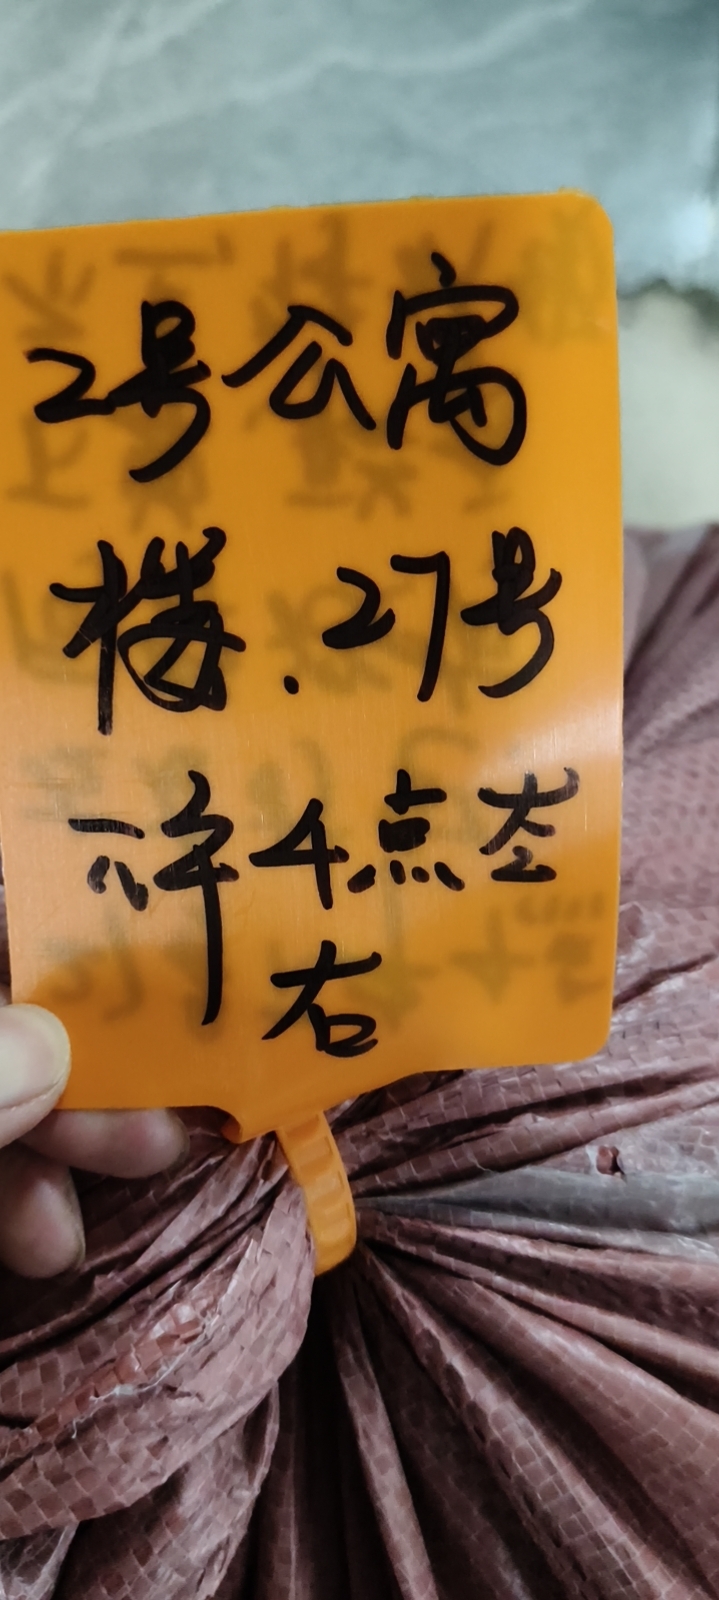 2号公寓
楼.27号
下午4点左
右